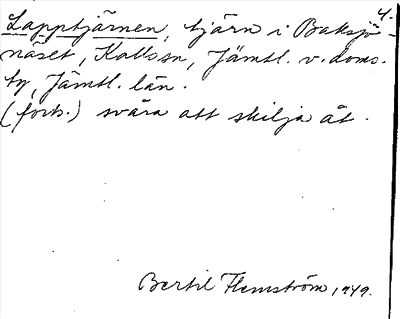 4.
Lapptjärnen, tjärn i Baksjö-
näset, Kallssn, Jämtl. v. doms.
ty, Jämtl. län.
(forts.) svåra att skilja åt.
Bertil Flemström, 1949.